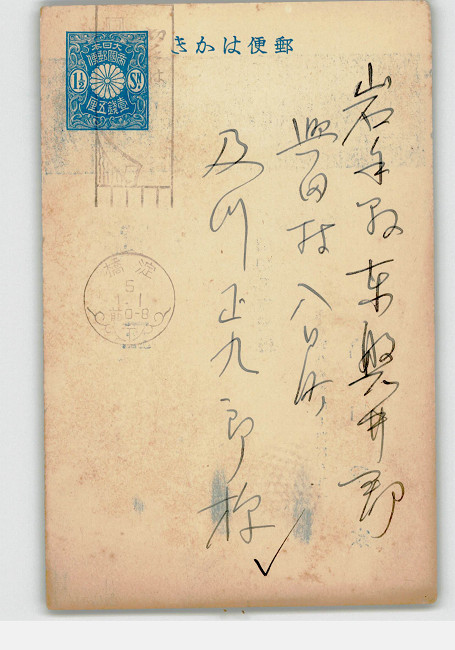 郵便はかき
大日本
帝國郵便
1½ SN
壹錢五厘
岩手縣東磐井郡
奥田村八日町
及川正九郎様
淀橋
5
1.1
前0-8